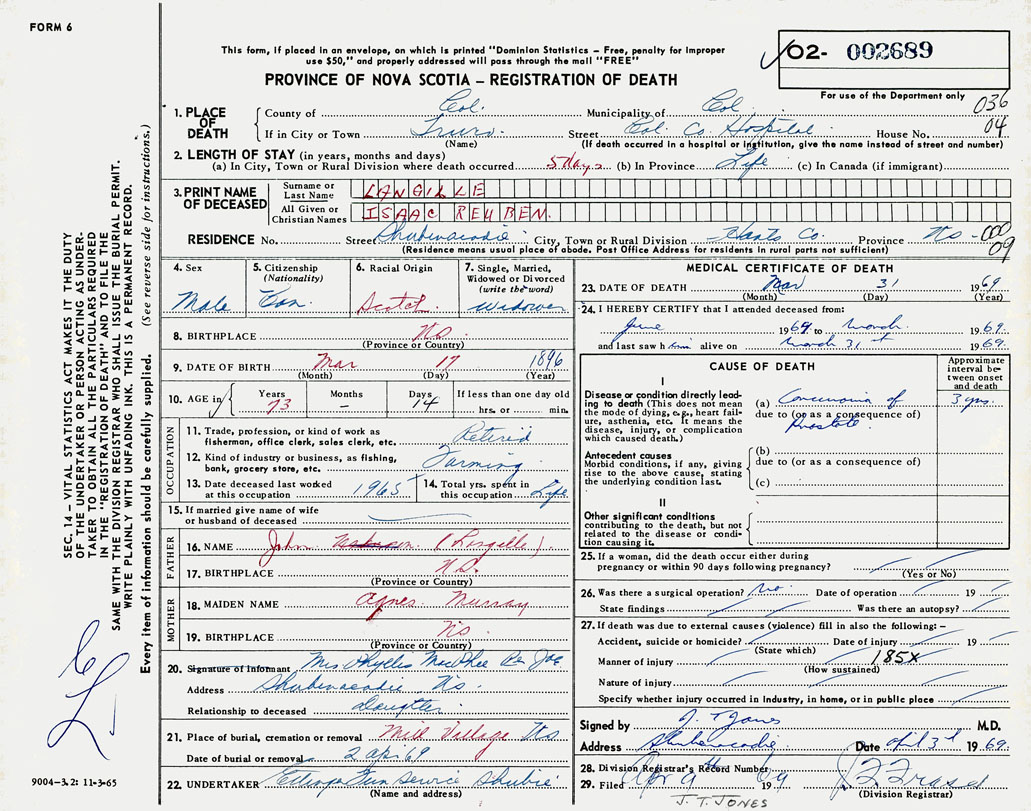 FORM 6
This form, if placed in an envelope, on which is printed "Dominion Statistics – Free, penalty for improper
use $50," and properly addressed will pass through the mail "FREE"
02- 002689
PROVINCE OF NOVA SCOTIA – REGISTRATION OF DEATH
For use of the Department only
036
04
1. PLACE OF DEATH
County of Col. Municipality of Col
If in City or Town Truro. Street Col. Co. Hospital House No.
(Name) (If death occurred in a hospital or institution, give the name instead of street and number)
2. LENGTH OF STAY (in years, months and days)
(a) In City, Town or Rural Division where death occurred 5 days (b) In Province Life (c) In Canada (if immigrant)
3. PRINT NAME OF DECEASED
Surname or Last Name LANGILLE
All Given or Christian Names ISAAC REUBEN.
RESIDENCE No. Street Shubenacadie City, Town or Rural Division Hants Co. Province NS - 000
09
(Residence means usual place of abode. Post Office Address for residents in rural parts not sufficient)
4. Sex
Male
5. Citizenship
(Nationality)
Can.
6. Racial Origin
Scotch
7. Single, Married,
Widowed or Divorced
(write the word)
Widower
8. BIRTHPLACE NS
(Province or Country)
9. DATE OF BIRTH Mar 17 1896
(Month) (Day) (Year)
10. AGE in Years Months Days If less than one day old
73 – 14 hrs. or min.
OCCUPATION
11. Trade, profession, or kind of work as
fisherman, office clerk, sales clerk, etc. Retired
12. Kind of industry or business, as fishing,
bank, grocery store, etc. Farming
13. Date deceased last worked
at this occupation 1965
14. Total yrs. spent in
this occupation Life
15. If married give name of wife
or husband of deceased
FATHER
16. NAME John (Langille).
17. BIRTHPLACE N.S.
(Province or Country)
MOTHER
18. MAIDEN NAME Agnes Murray
19. BIRTHPLACE NS
(Province or Country)
20. Signature of informant Mrs Phyllis MacPhee
Address Shubenacadie NS.
Relationship to deceased Daughter
21. Place of burial, cremation or removal Mill Village NS
Date of burial or removal 2 apr 69
22. UNDERTAKER Fun Service Shubie
(Name and address)
MEDICAL CERTIFICATE OF DEATH
23. DATE OF DEATH Mar 31 1969
(Month) (Day) (Year)
24. I HEREBY CERTIFY that I attended deceased from:
June 1969 to March 1969.
and last saw him alive on March 31st 1969.
CAUSE OF DEATH
Approximate
interval be-
tween onset
and death
I
Disease or condition directly lead-
ing to death (This does not mean
the mode of dying, e.g., heart fail-
ure, asthenia, etc. It means the
disease, injury, or complication
which caused death.)
(a) Carcinoma of 3 yrs.
due to (or as a consequence of)
Prostate
Antecedent causes
Morbid conditions, if any, giving
rise to the above cause, stating
the underlying condition last.
(b)
due to (or as a consequence of)
(c)
II
Other significant conditions
contributing to the death, but not
related to the disease or condi-
tion causing it.
25. If a woman, did the death occur either during
pregnancy or within 90 days following pregnancy?
(Yes or No)
26. Was there a surgical operation? No Date of operation 19
State findings Was there an autopsy?
27. If death was due to external causes (violence) fill in also the following: –
Accident, suicide or homicide? Date of injury 19
(State which)
185X
Manner of injury
(How sustained)
Nature of injury
Specify whether injury occurred in Industry, in home, or in public place
Signed by J. T Jones M.D.
Address Shubenacadie Date April 3rd 1969.
28. Division Registrar's Record Number
29. Filed Apr 9th 1969
(Division Registrar)
J.T. JONES
SEC. 14 – VITAL STATISTICS ACT MAKES IT THE DUTY
OF THE UNDERTAKER OR PERSON ACTING AS UNDER-
TAKER TO OBTAIN ALL THE PARTICULARS REQUIRED
IN THE "REGISTRATION OF DEATH" AND TO FILE THE
SAME WITH THE DIVISION REGISTRAR WHO SHALL ISSUE THE BURIAL PERMIT.
WRITE PLAINLY WITH UNFADING INK. THIS IS A PERMANENT RECORD.
Every item of information should be carefully supplied. (See reverse side for instructions.)
9004–3.2: 11-3-65